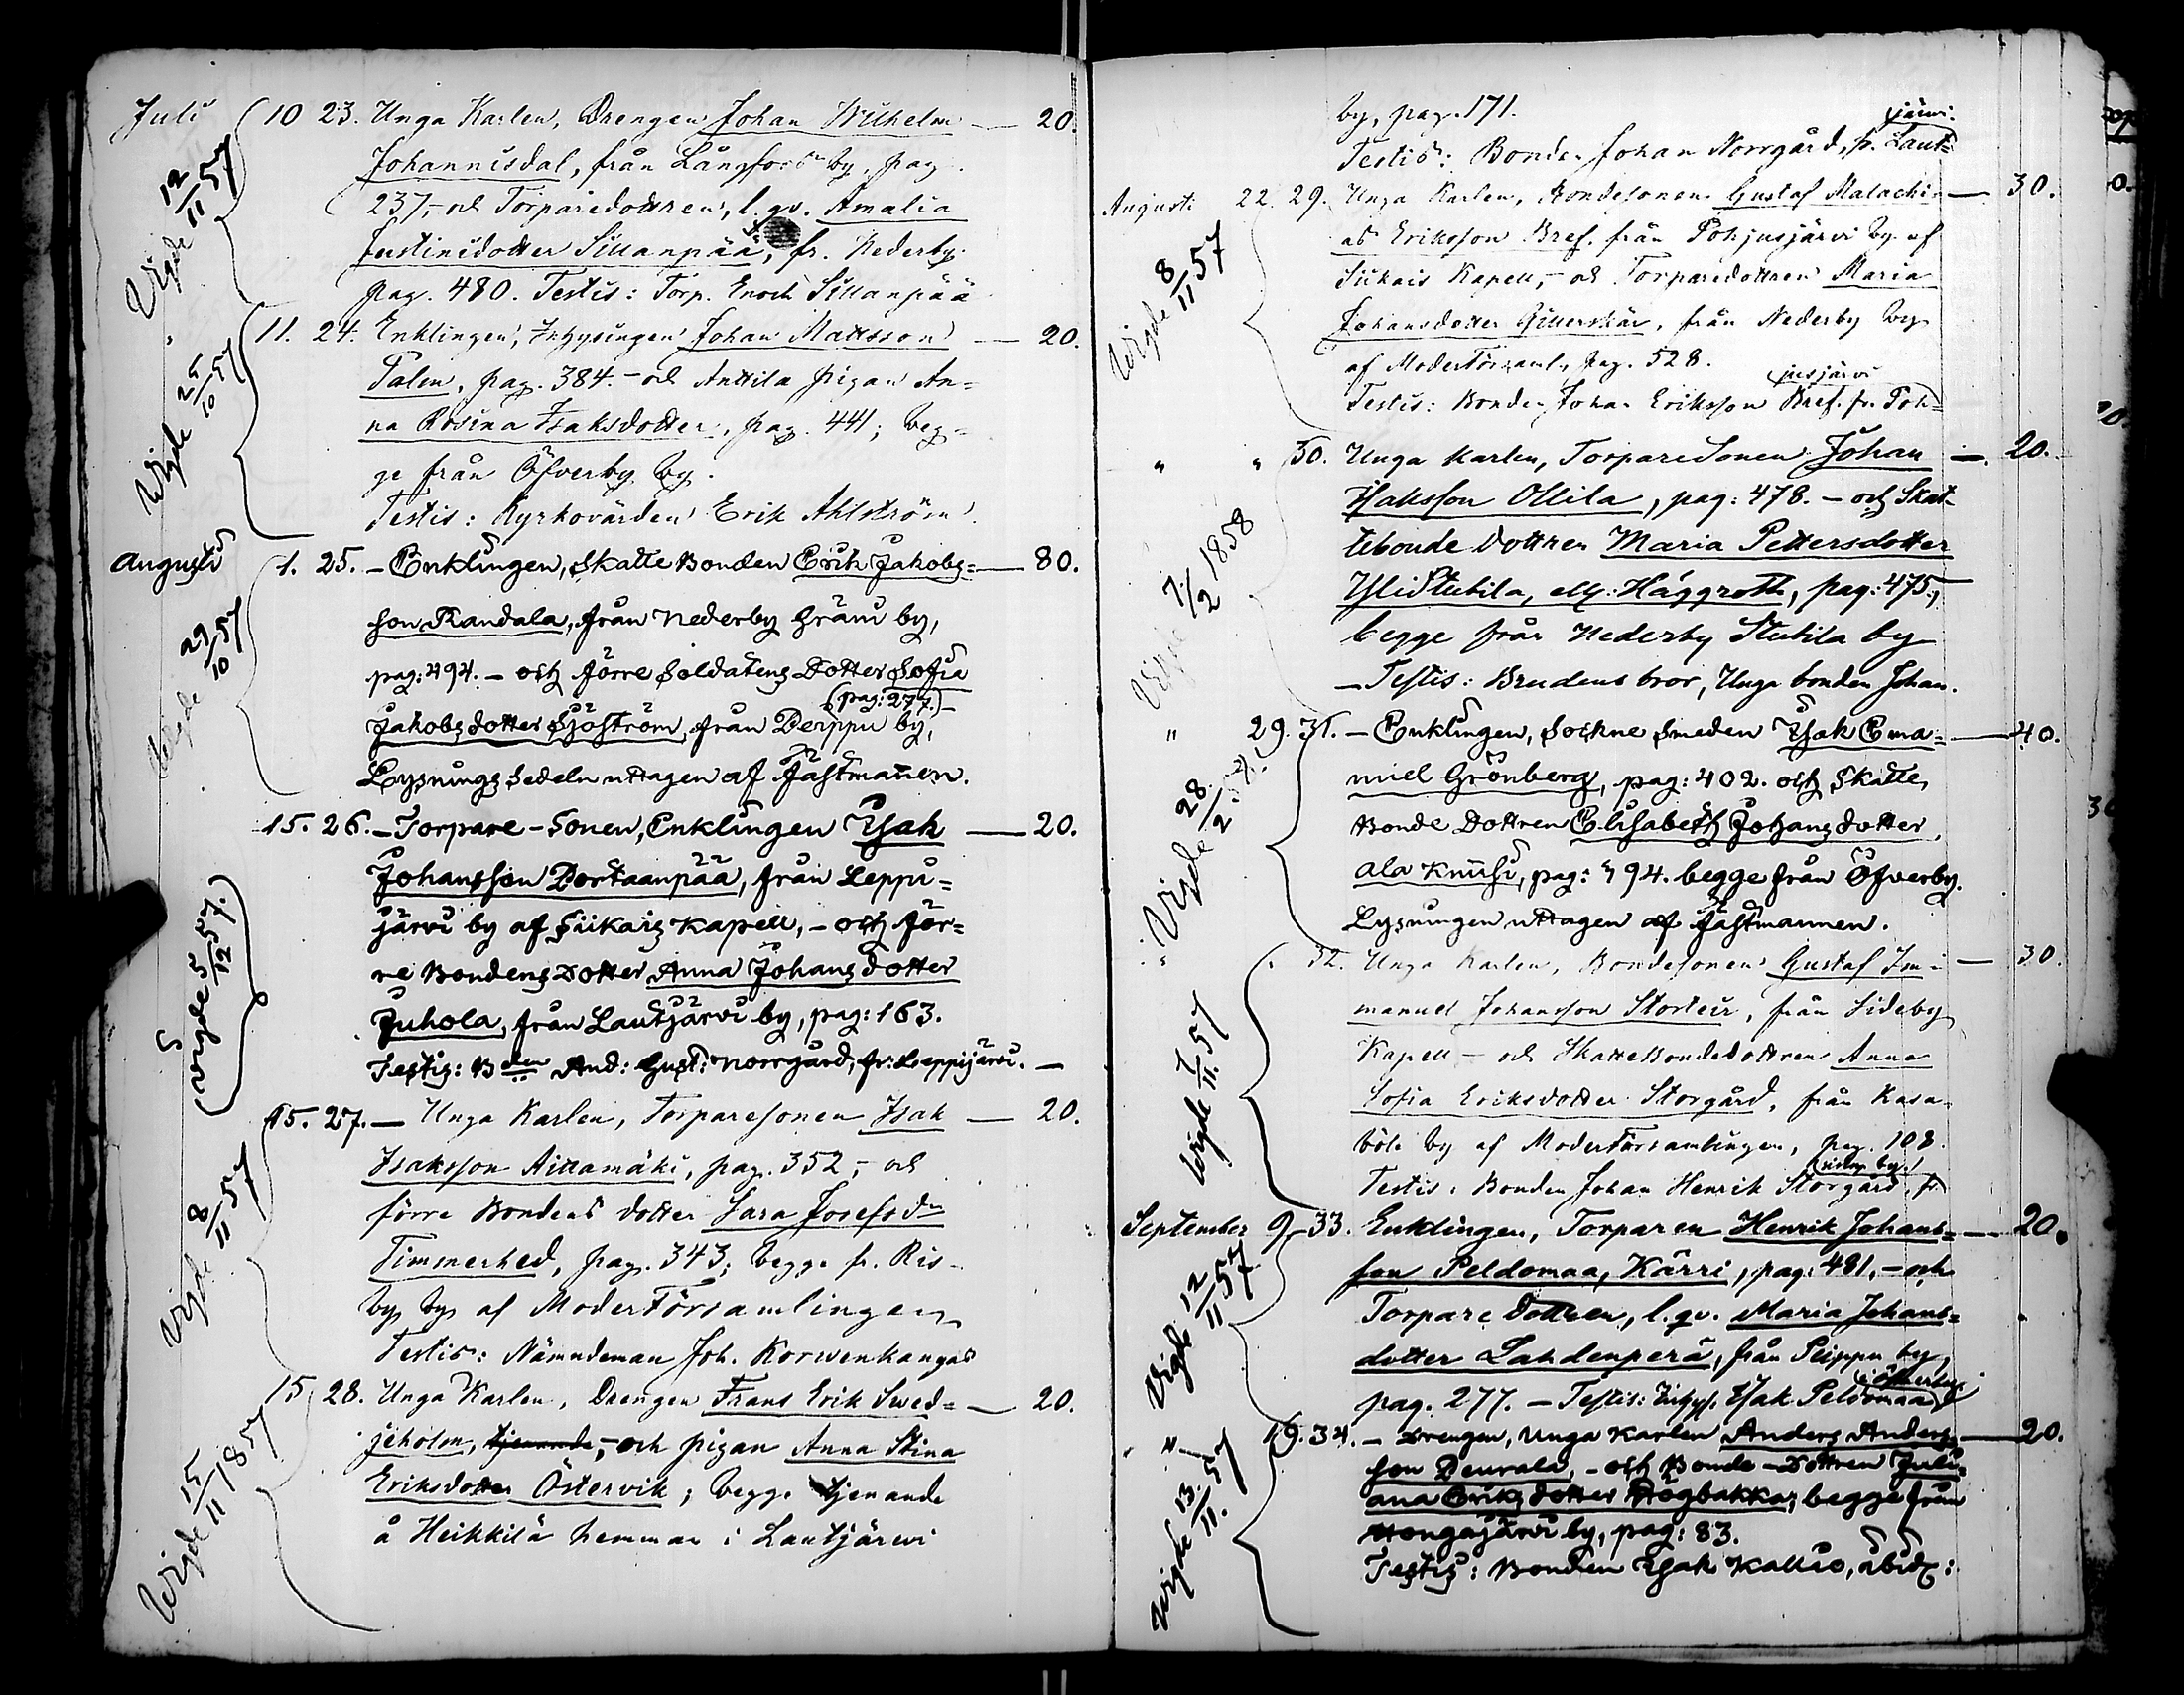 Juli 10 23. Unga Karlen, Drengen Johan Wilhelm — 20.
Johannisdal, från Långfors by, pag.
237,- och Torparedottren, l. qv. Amalia
Justinsdotter Sillanpää, fr. Nederby
pag. 480. Testis: Torp. Enoch Sillanpää
Vigde 12/11 57
11. 24. Enklingen, Inhysingen Johan Mattsson — 20.
Palen, pag. 384. - och Anttila pigan An=
na Rosina Isaksdotter, pag. 441; beg=
ge från Öfverby by.
Testis: Kyrkovärden Erik Ahlström.
Vigde 25/10 57
Augusti 1. 25. - Enklingen, Skatte Bonden Erik Jakobs= — 80.
son Randala, från Nederby Gräni by,
pag: 494. - och förre Soldatens Dotter Sofia
(pag: 277.)
Jakobsdotter Sjöström, från Peippu by,
Lysningssedeln uttagen af Fästmannen.
Vigde 29/10 57
15. 26. - Torpare-Sonen, Enklingen Isak — 20.
Johansson Portaanpää, från Leppi=
järvi by af Siikais Kapell, - och för=
re Bondens Dotter Anna Johansdotter
Juhola, från Lautjärvi by, pag: 163.
Testis: Bden And: Gust: Norrgård, fr: Leppijärvi. —
(Vigde 5/12 57.)
15. 27. — Unga Karlen, Torparesonen Isak — 20.
Isaksson Aittamäki, pag. 352,- och
förre Bondens dotter Sara Josefsdr
Timmerhed, pag. 343; begge fr. Ris-
by by af ModerFörsamlingen
Testis: Nämndeman Joh. Korwenkangas
Vigde 8/11 57
15 28. Unga Karlen, Drengen Frans Erik Swed= — 20.
jeholm, tjenande,- och pigan Anna Stina
Eriksdotter Östervik; begge tjenande
å Heikkilä hemman i Lautjärwi
Vigde 15/11 1857
by, pag. 171.
järwi.
Testis: Bonden Johan Norrgård, fr. Laut=
Augusti 22. 29. Unga Karlen, Bondesonen Gustaf Malachi- — 30.
as Eriksson Bref. från Pohjusjärvi by af
Siikais Kapell,- och Torparedottren Maria
Johansdotter Gitterskär, från Nederby by
af ModerFörsaml. pag. 528.
jusjärvi
Testis: Bonden Johan Eriksson Bref. fr. Poh=
Vigde 8/11 57
" " 30. Unga Karlen, TorpareSonen Johan — 20.
Isaksson Ollila, pag: 478. - och Skat-
tebonde Dottren Maria Pettersdotter
YliStubila, ell: Häggroth, pag: 475,
begge från Nederby Stubila by
- Testis: Brudens bror, Unga bonden Johan.
Vigde 7/2 1858
" 29. 31. - Enklingen, Sockne Smeden Isak Ema= — 40.
nuel Grönberg, pag: 402. och Skatte
Bonde Dottren Elisabeth Johansdotter
Ala Knusi, pag: 394. begge från Öfverby.
Lysningen uttagen af Fästmannen.
Vigde 28/2
" 32. Unga Karlen, Bondesonen Gustaf Im- — 30.
manuel Johansson Storteir, från Sideby
Kapell - och SkatteBondedottren Anna
Sofia Eriksdotter Storgård, från Kasa-
böle by af ModerFörsamlingen, pag. 108.
Testis: Bonden Johan Henrik Storgård, fr.
Vigde 1/11 57
September 9. 33. Enklingen, Torparen Henrik Johans= — 20.
son Peldomaa, Kärri, pag: 481, - och
Torpare Dottren, l. qv. Maria Johans=
dotter Lahdenperä, från Peippu by,
pag. 277. - Testis: Inhys. Isak Peldomaa
Vigde 12/11 57
" 19. 34. - Drengen, Unga Karlen Anders Anders= — 20.
son Peurala, - och Bonde-Dottren Juli=
ana Eriksdotter Högbakka, begge från
Hongajärvi by, pag: 83.
Testis: Bonden Isak Kallio, ibid:
Vigde 13/11. 57